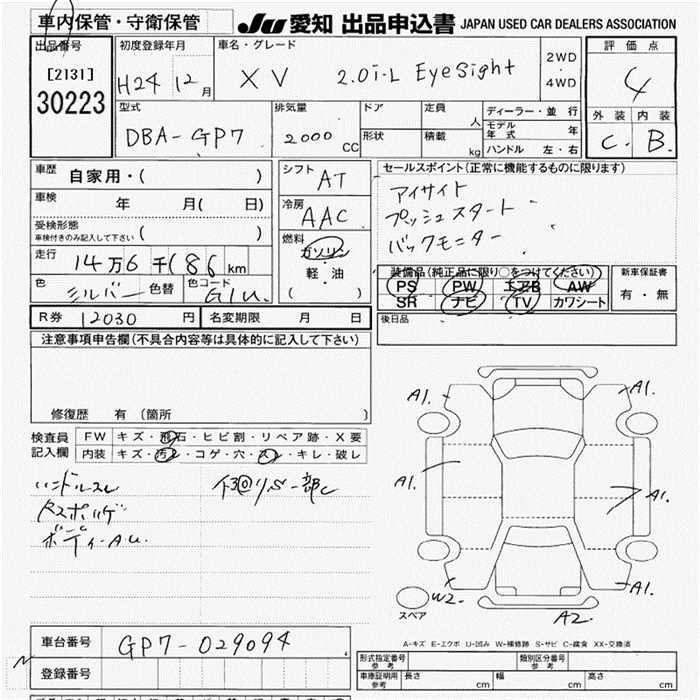 車内保管・守衛保管
JU 愛知 出品申込書 JAPAN USED CAR DEALERS ASSOCIATION
出品番号
[2131]
30223
初度登録年月
H24 12月
車名・グレード
XV 2.0i-L EyeSight
2WD
・
4WD
評価点
4
外装 内装
C. B.
型式
DBA-GP7
排気量
2000 CC
ドア
形状
定員
人
積載
kg
ディーラー・並行
モデル年式 年
ハンドル 左・右
車歴
自家用・( )
車検
年 月( 日)
受検形態
車検付きのみ記入して下さい ( )
走行
14万6千(86 km
色
シルバー
色替
色コード
G1U.
シフト
AT
冷房
AAC
燃料
ガソリン
・
軽・油
( )
セールスポイント(正常に機能するものに限ります)
アイサイト
プッシュスタート
バックモニター
装備品(純正品に限り○をつけてください)
PS PW エアB AW
SR ナビ TV カワシート
新車保証書
有・無
後日品
R券 12030 円
名変期限 月 日
注意事項申告欄(不具合内容等は具体的に記入して下さい)
修復歴 有(箇所 )
検査員記入欄
FW キズ・飛石・ヒビ割・リペア跡・X要
内装 キズ・汚レ・コゲ・穴・スレ・キレ・破レ
ハンドルスレ
ボディ・AU.
A1.
A1.
A1.
A1.
A1.
W2.
A2.
スペア
A-キズ E-エクボ U-凹み W-補修跡 S-サビ C-腐食 XX-交換済
車台番号
GP7-029094
登録番号
形式指定番号 参考
類別区分番号 参考
車庫証明用 参考
長さ cm
幅 cm
高さ cm